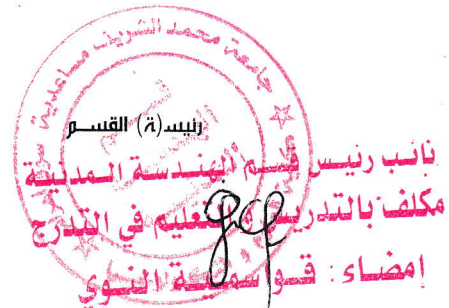 جامعة محمد الشريف مساعدية
رئيس(ة) القسم
نائب رئيس قسم الهندسة المدنية
مكلف بالتدريس والتعليم في التدرج
إمضاء :